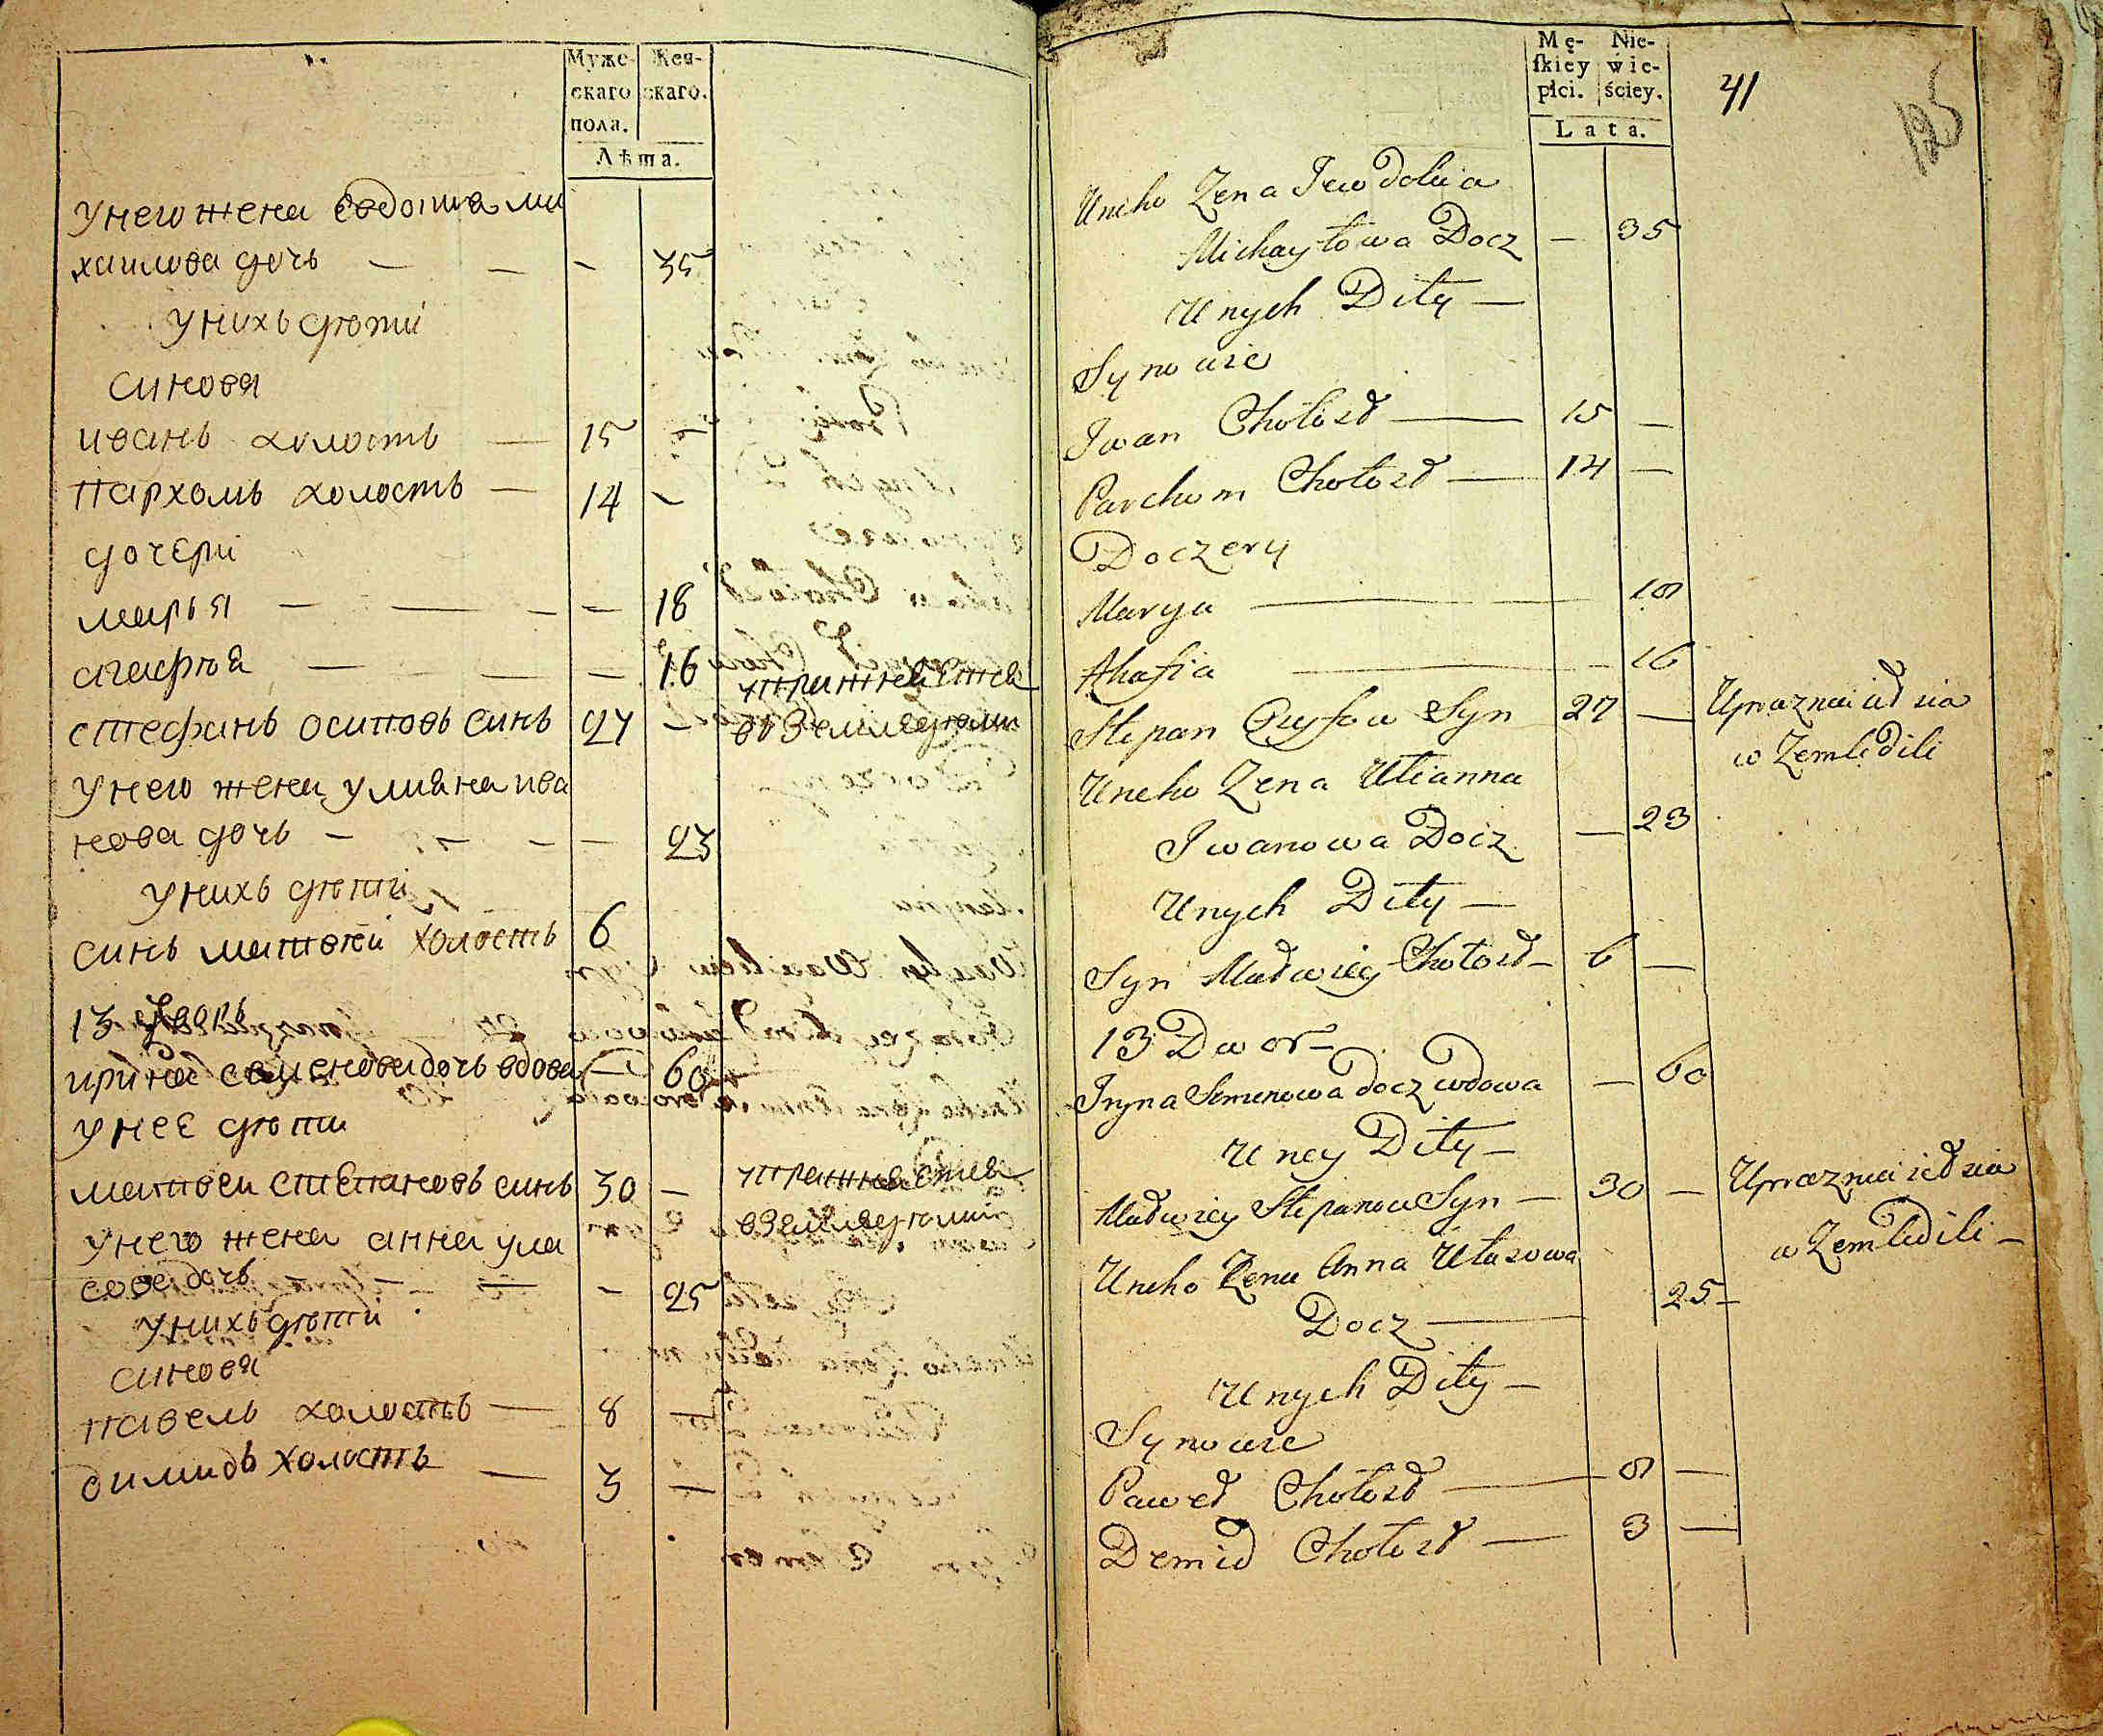 Муже-
скаго
пола.
Жен-
скаго.
Лѣта.
унего жена евдотия ми
хаилова дочь — — — 35
унихъ дѣти
синовя
иванъ холостъ — 15 —
пархомъ холостъ — 14 —
дочери
марья — — — — 18
агафѣя — — 16
стефанъ осиповъ синъ 27 —
унего жена улияна ива
нова дочь — — — — 23
унихъ дѣти
синъ матвѣй холостъ 6
13 дворъ
ирина семенова дочь вдова — 60
унее дѣти
матвеи степановъ синъ 30 —
унего жена анна ула
сова дочь — — — — 25
унихъ дѣти
синовя
павелъ холостъ — 8 —
димидъ холостъ — 3 —
Mę-
ſkiey
płci.
Nie-
wie-
ściey.
Lata.
41
125
Uneho Zena Jewdokia
Michayłowa Docz — 35
Unych Dity —
Synowie
Iwan Chołost — 15 —
Parchom Chołost — 14 —
Doczery
Marya — 18
Ahafia — 16
Stepan Osyfow Syn 27 —
Upraznaietsia
w Zemledili
Uneho Zena Ulianna
Iwanowa Docz — 23
Unych Dity —
Syn Matwiey Chołost — 6 —
13 Dwor —
Iryna Semenowa docz wdowa — 60
Uney Dity —
Matwiey Stepanow Syn — 30 —
Upraznaietsia
w Zemledili —
Uneho Zena Anna Ułasowa
Docz — 25 —
Unych Dity —
Synowie
Paweł Chołost — 8 —
Demid Chołost — 3 —